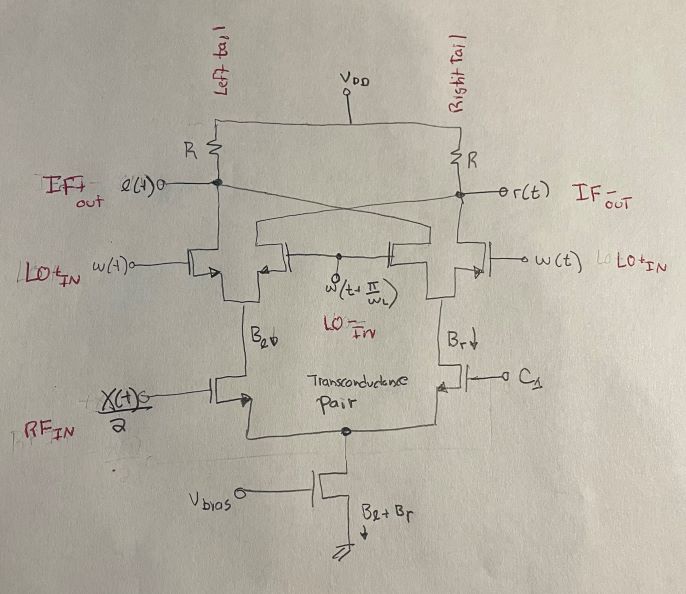 Left tail
Right Tail
VDD
R
R
IF+out
l(t)
r(t)
IF-OUT
LO+IN
w(t)
w(t)
LO+IN
w(t+π/ωL)
LO-IN
Bl
Br
X(t)/2
RFIN
Transconductance
Pair
C1
Vbias
Bl+Br